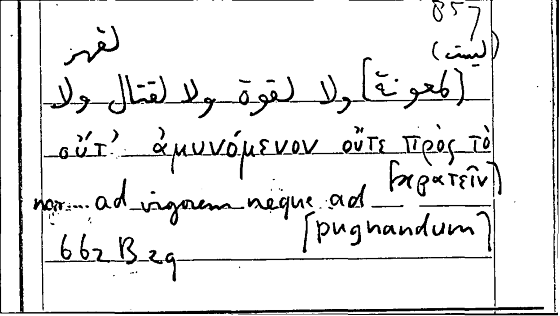 857
لقهر (ليست)
[لمعونة] ولا لقوة ولا لقتال ولا
οὔτ' ἀμυνόμενον οὔτε πρὸς τὸ
non ... ad vigorem neque ad [κρατεῖν]
[pugnandum]
662 B 29